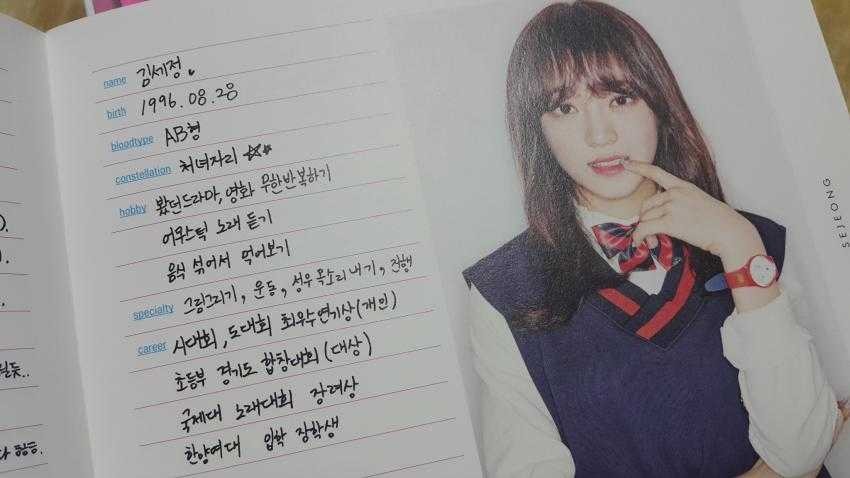 name 김세정
birth 1996.08.28
bloodtype AB형
constellation 처녀자리 ☆☆
hobby 봤던드라마, 영화 무한반복하기
어쿠스틱 노래 듣기
음식 섞어서 먹어보기
specialty 그림그리기, 운동, 성우 목소리내기, 진행
career 시대회, 도대회 최우수연기상(개인)
초등부 경기도 합창대회(대상)
국제대 노래대회 장려상
한양여대 입학 장학생
SEJEONG